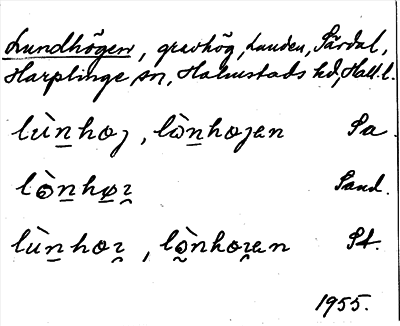 Lundhögen, gravhög, Lunden, Särdal,
Harplinge sn, Halmstads hd, Hall. l.
lùn̲hœȝ, lòn̲hœȝen Sa
lòn̲hø̲ʒ̯ Sand.
lùn̲hœʒ̯, lò̯nhœʒ̯en St.
1955.